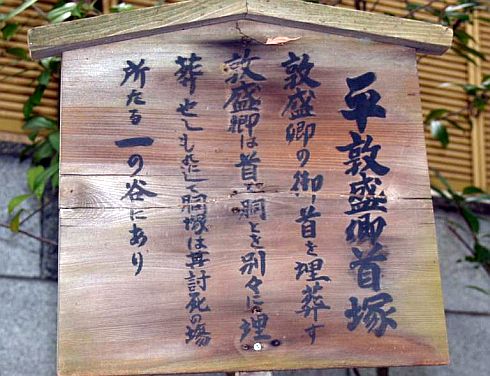 平敦盛卿首塚
敦盛卿の御首を埋葬す
敦盛卿は首と胴とを別々に埋
葬せしもの也 胴塚は其討死の場
所たる一の谷にあり